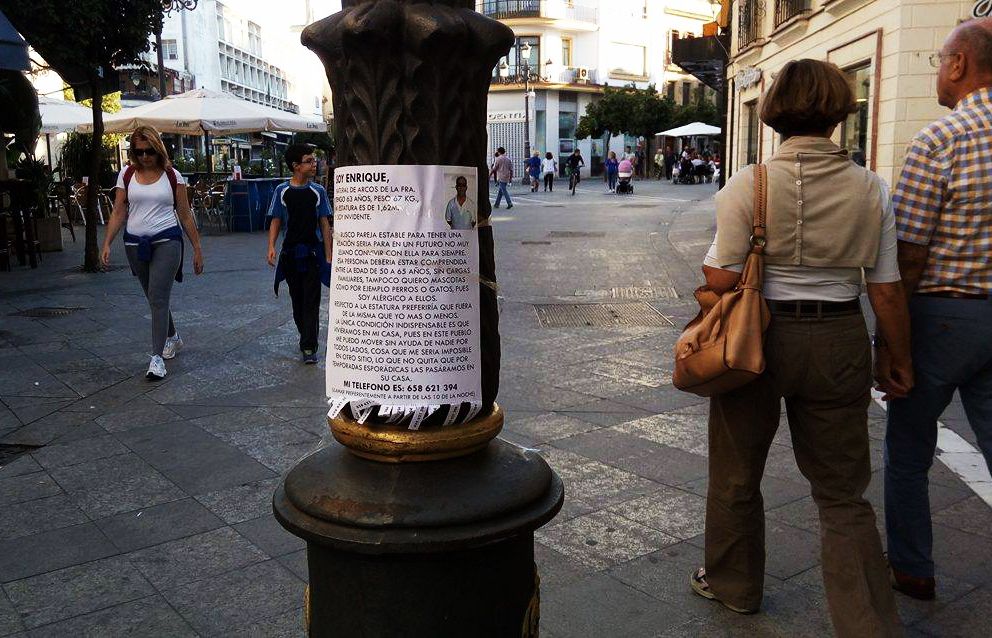 SOY ENRIQUE,
NATURAL DE ARCOS DE LA FRA.
TENGO 63 AÑOS, PESO 67 KG.,
ESTATURA ES DE 1,62M.
SOY INVIDENTE.
BUSCO PAREJA ESTABLE PARA TENER UNA
RELACIÓN SERIA PARA EN UN FUTURO NO MUY
LEJANO CONVIVIR CON ELLA PARA SIEMPRE.
ESA PERSONA DEBERIA ESTAR COMPRENDIDA
ENTRE LA EDAD DE 50 A 65 AÑOS, SIN CARGAS
FAMILIARES, TAMPOCO QUIERO MASCOTAS
COMO POR EJEMPLO PERROS O GATOS, PUES
SOY ALÉRGICO A ELLOS.
RESPECTO A LA ESTATURA PREFERIRÍA QUE FUERA
DE LA MISMA QUE YO MAS O MENOS.
LA ÚNICA CONDICIÓN INDISPENSABLE ES QUE
VIVIERAMOS EN MI CASA, PUES EN ESTE PUEBLO
ME PUEDO MOVER SIN AYUDA DE NADIE POR
TODOS LADOS, COSA QUE ME SERIA IMPOSIBLE
EN OTRO SITIO, LO QUE NO QUITA QUE POR
TEMPORADAS ESPORÁDICAS LAS PASÁRAMOS EN
SU CASA.
MI TELEFONO ES: 658 621 394
(LLAMAR PREFERENTEMENTE A PARTIR DE LAS 10 DE LA NOCHE)